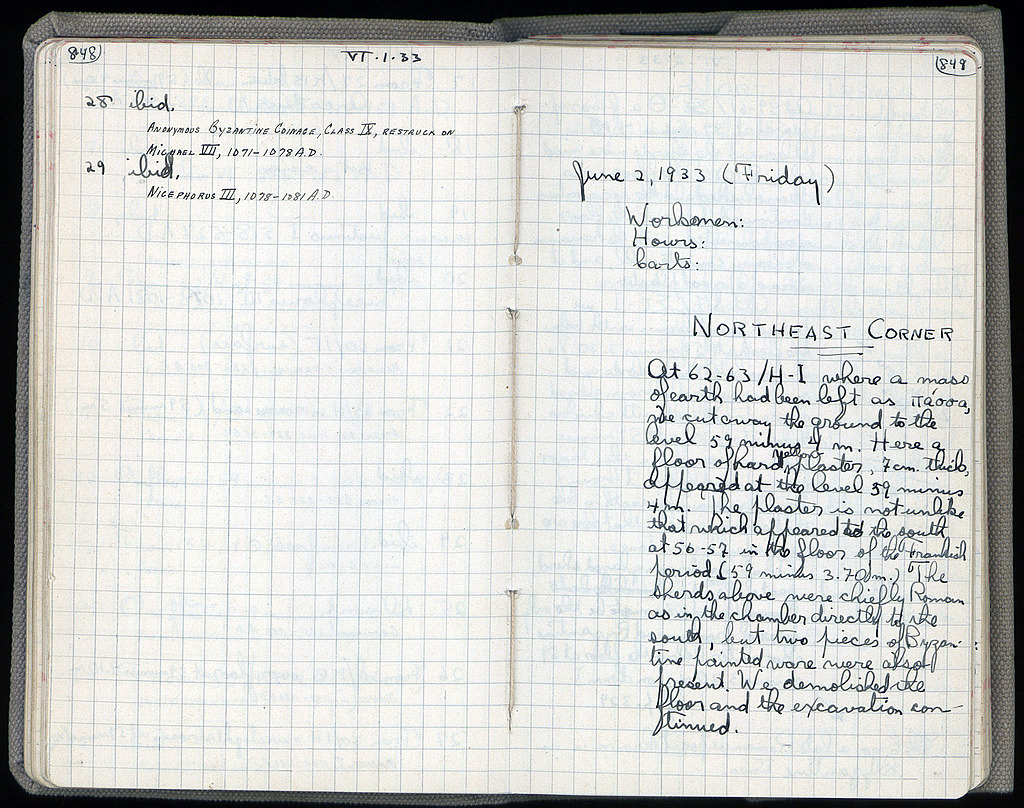 848
VI·1·33
28 ibid.
Anonymous Byzantine Coinage, Class IX, restruck on
Michael VII, 1071-1078 A.D.
29 ibid.
Nicephorus III, 1078-1081 A.D.
849
June 2, 1933 (Friday)
Workmen:
Hours:
Carts:
Northeast Corner
At 62-63/H-I where a mass
of earth had been left as πάσσα,
we cut away the ground to the
level 59 minus 4 m. Here a
floor of hard yellow plaster, 7 cm. thick,
appeared at the level 59 minus
4 m. The plaster is not unlike
that which appeared to the south
at 56-57 in the floor of the Frankish
period (59 minus 3.70 m.) The
sherds above were chiefly Roman
as in the chamber directly to the
south, but two pieces of Byzan-
tine painted ware were also
present. We demolished the
floor and the excavation con-
tinued.